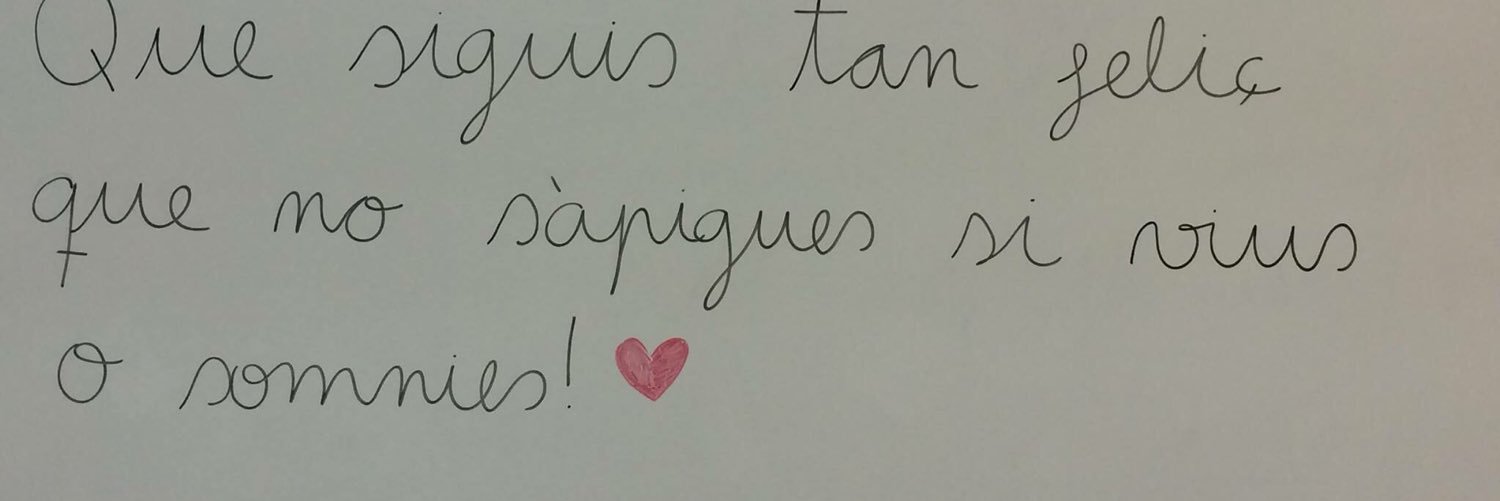 Que siguis tan feliç
que no sàpigues si vius
o somnies!